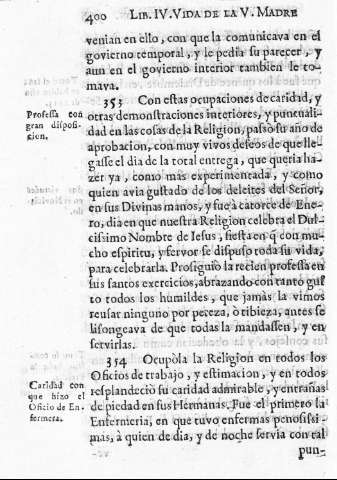 400 LIB. IV. VIDA DE LA V. MADRE
venian en ello, con que la comunicava en el
govierno temporal, y le pedia su parecer, y
aun en el govierno interior tambien le to-
mava.
353 Con estas ocupaciones de caridad, y
otras demonstraciones interiores, y puntuali-
dad en las cosas de la Religion, passò su año de
aprobacion, con muy vivos deseos de que lle-
gasse el dia de la total entrega, que queria ha-
zer ya, como mas experimentada, y como
quien avia gustado de los deleites del Señor,
en sus Divinas manos, y fue à catorce de Ene-
ro, dia en que nuestra Religion celebra el Dul-
cissimo Nombre de Iesus, fiesta en q̃ con mu-
cho espiritu, y fervor se dispuso toda su vida,
para celebrarla. Prosiguiò la recien professa en
sus santos exercicios, abrazando con tanto gus-
to todos los humildes, que jamàs la vimos
reusar ninguno por pereza, ò tibieza, antes se
lisongeava de que todas la mandassen, y en
servirlas.
354 Ocupòla la Religion en todos los
Oficios de trabajo, y estimacion, y en todos
resplandeciò su caridad admirable, y entrañas
de piedad en sus Hermanas. Fue el primero la
Enfermeria, en que tuvo enfermas penosissi-
mas, à quien de dia, y de noche servia con tal
pun-
Professa con
gran disposi-
cion.
Caridad con
que hizo el
Oficio de En-
fermera.